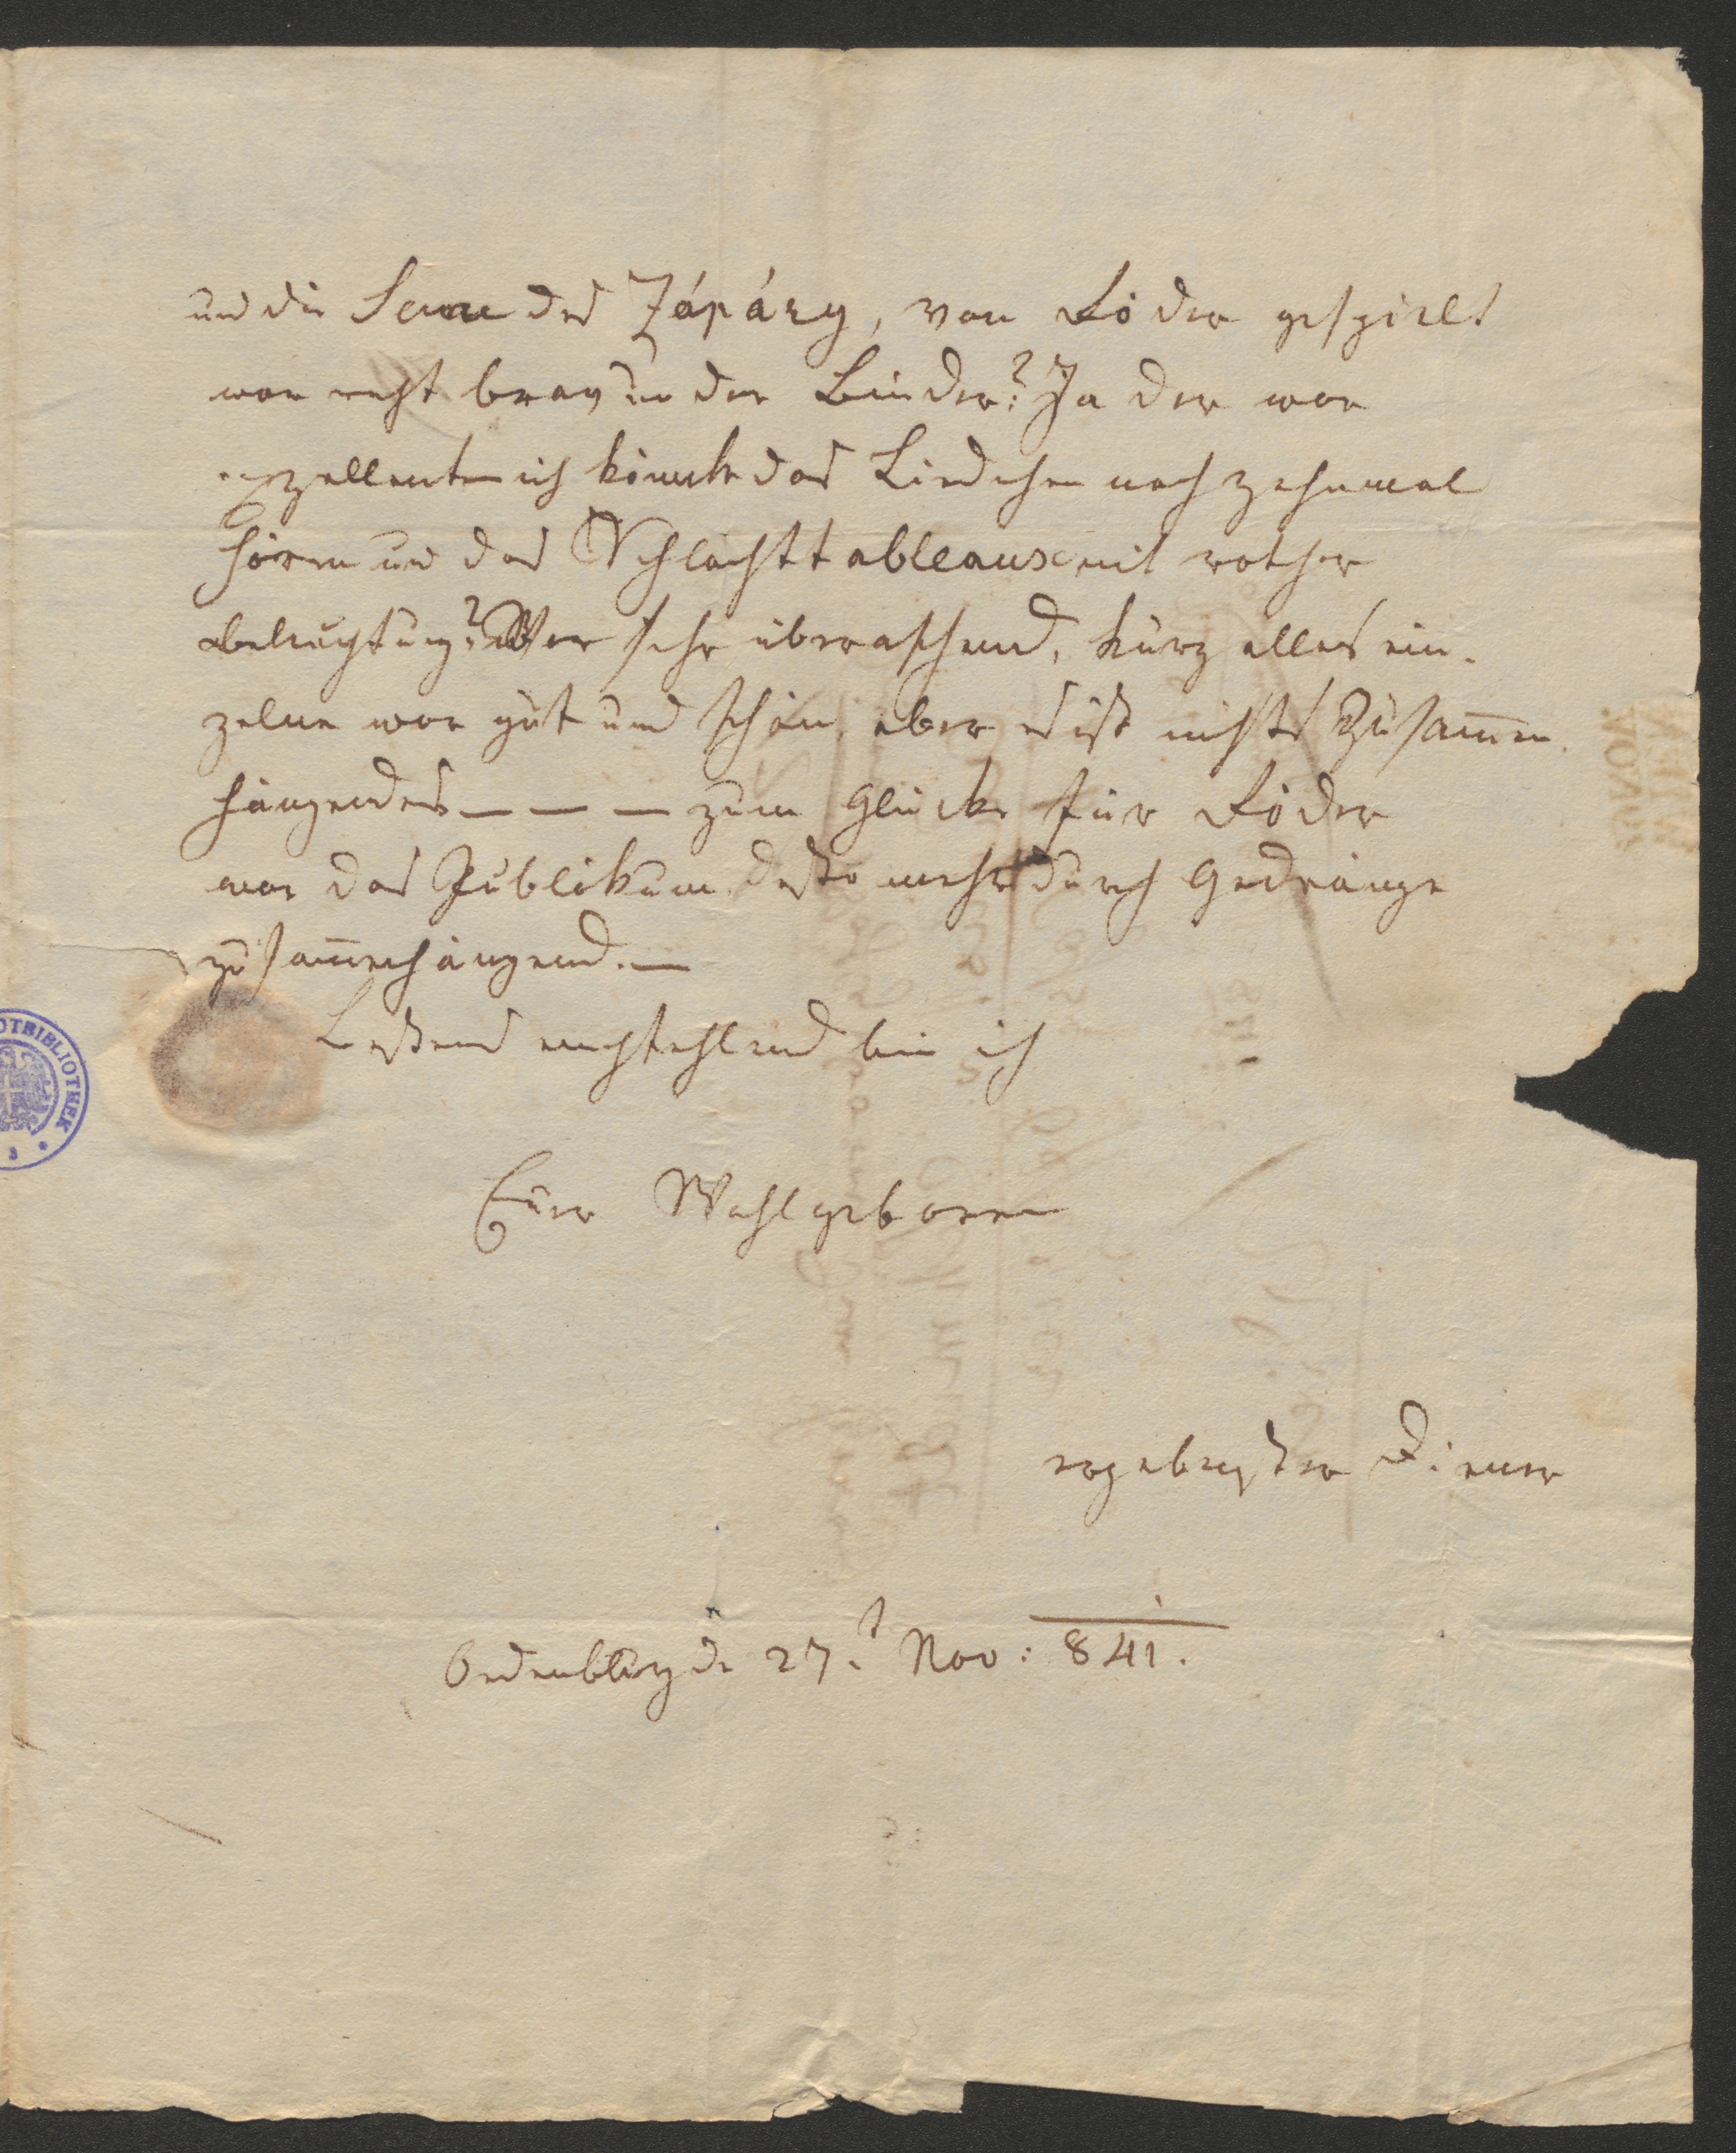 und die Scene des Zápáry, von Föder gespielt
war recht brav und der Binder? Ja der war
exzellent ich könnte das Liedchen noch zehnmal
hören und das Schlachttableaux mit rother
Beleuchtung? War sehr überraschend, kurz alles ein-
zelne war gut und schön, aber es ist nichts Zusam̅en-
hängendes — — — zum Glücke für Föder
war das Publikum desto mehr durch Gedränge
zusam̅enhängend. —
Bestens empfehlend bin ich
Euer Wohlgeboren
ergebenster Diener
Oedenburg d. 27t Nov: 841.